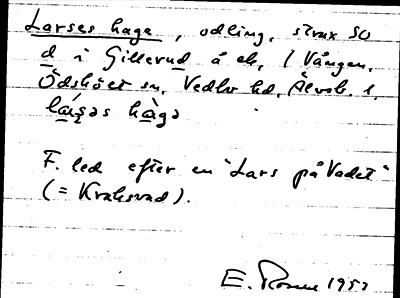 Larses hage, odling, strax SO
d i Gillerud å ek. 1 Vången,
Ödskölts sn, Vedbo hd, Älvsb. l.
lársəs hàgə
F. led efter en "Lars på Vadet"
(= Kraksvad).
E. 1953